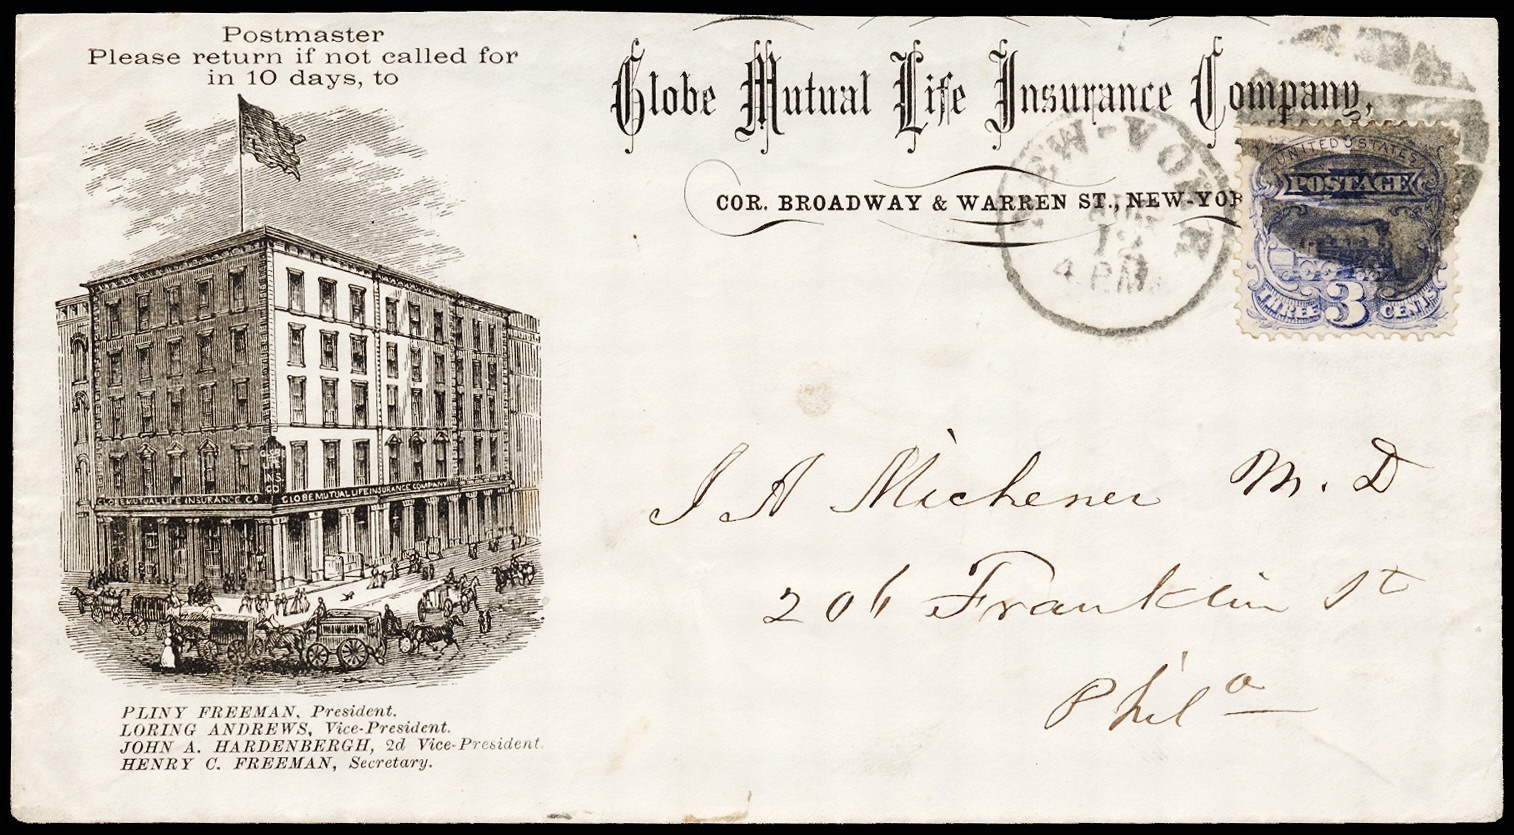 Postmaster
Please return if not called for
in 10 days, to
Globe Mutual Life Insurance Company,
COR. BROADWAY & WARREN ST., NEW-YOR
NEW-YORK
13
4 PM
UNITED STATES
POSTAGE
THREE 3 CENTS
GLOBE MUTUAL LIFE INSURANCE CO
GLOBE MUTUAL LIFE INSURANCE COMPANY
J A Michener M. D
206 Franklin St
Phila
PLINY FREEMAN, President.
LORING ANDREWS, Vice-President.
JOHN A. HARDENBERGH, 2d Vice-President.
HENRY C. FREEMAN, Secretary.